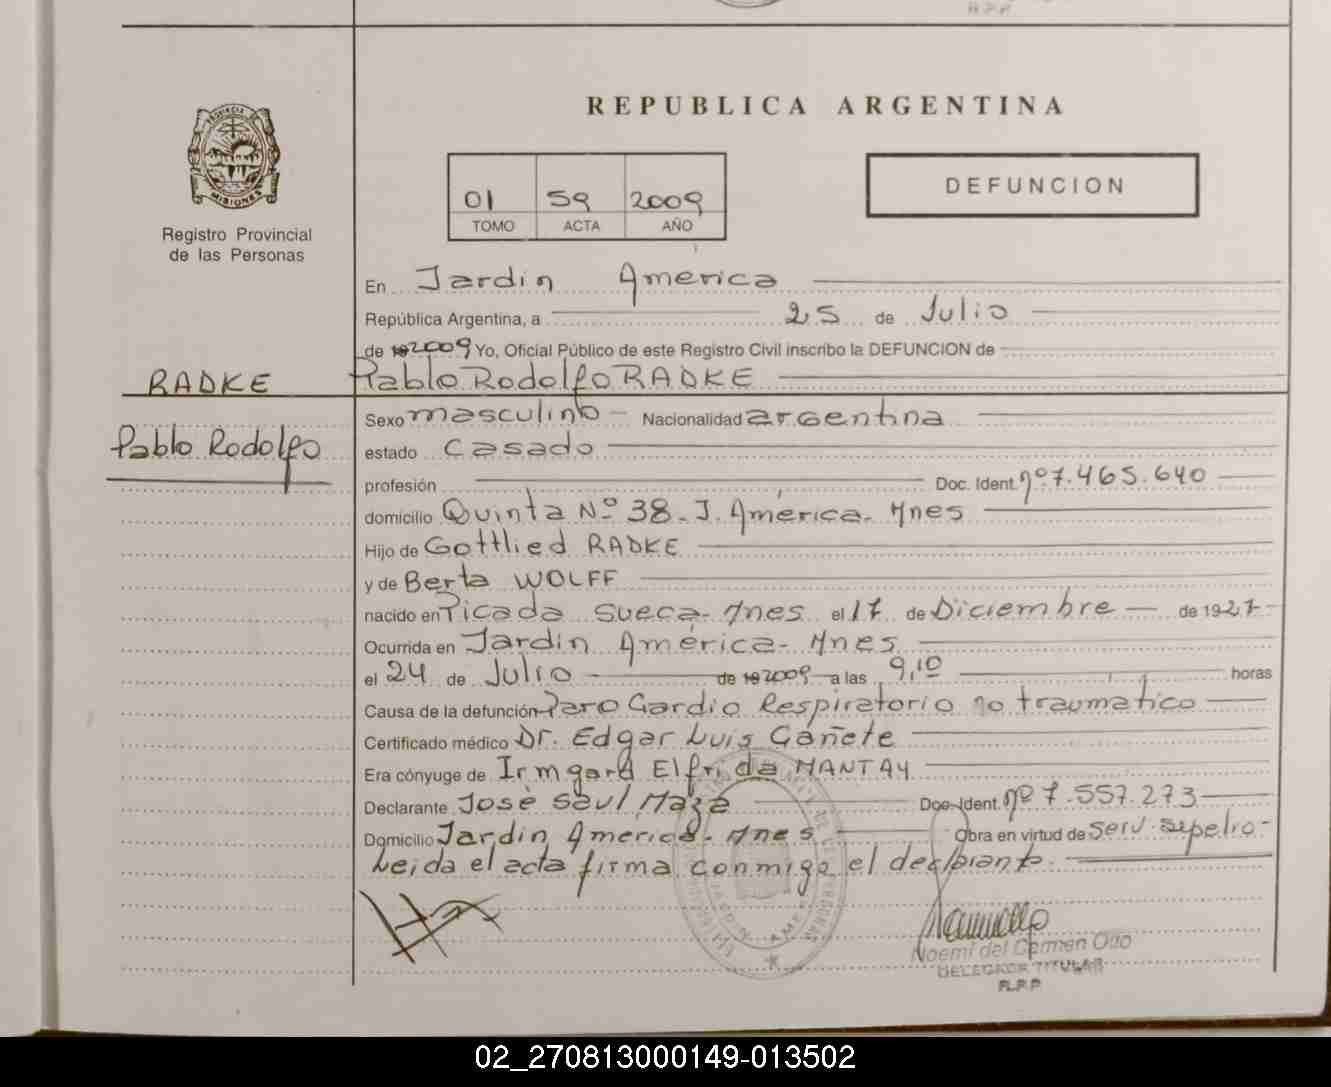 R.P.P.
REPUBLICA ARGENTINA
PROVINCIA
MISIONES
Registro Provincial
de las Personas
01 59 2009
TOMO ACTA AÑO
DEFUNCION
En Jardin America
República Argentina, a 25 de Julio
de 19 2009 Yo, Oficial Público de este Registro Civil inscribo la DEFUNCION de
RADKE Pablo Rodolfo RADKE
Pablo Rodolfo
Sexo masculino Nacionalidad argentina
estado Casado
profesión Doc. Ident. nº 7.465.640
domicilio Quinta Nº 38 - J. América - Mnes
Hijo de Gottlied RADKE
y de Berta WOLFF
nacido en Picada Sueca - Mnes el 17 de Diciembre de 1927
Ocurrida en Jardin América - Mnes
el 24 de Julio de 19 2009 a las 9,10 horas
Causa de la defunción Paro Cardio Respiratorio no traumático
Certificado médico Dr. Edgar Luis Cañete
Era cónyuge de Irmgard Elfrida MANTAY
Declarante José Saul Maza Doc. Ident. nº 7.557.273
Domicilio Jardin América - Mnes Obra en virtud de serv. sepelio -
Leida el acta firma conmigo el declarante.
Noemí del Carmen Otto
DELEGADA TITULAR
R.P.P
02_270813000149-013502